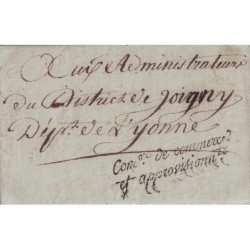 Aux Administrateurs
du District de Joigny
Dépt. de L'yonne
Com.on de commerce
et approvisionnts